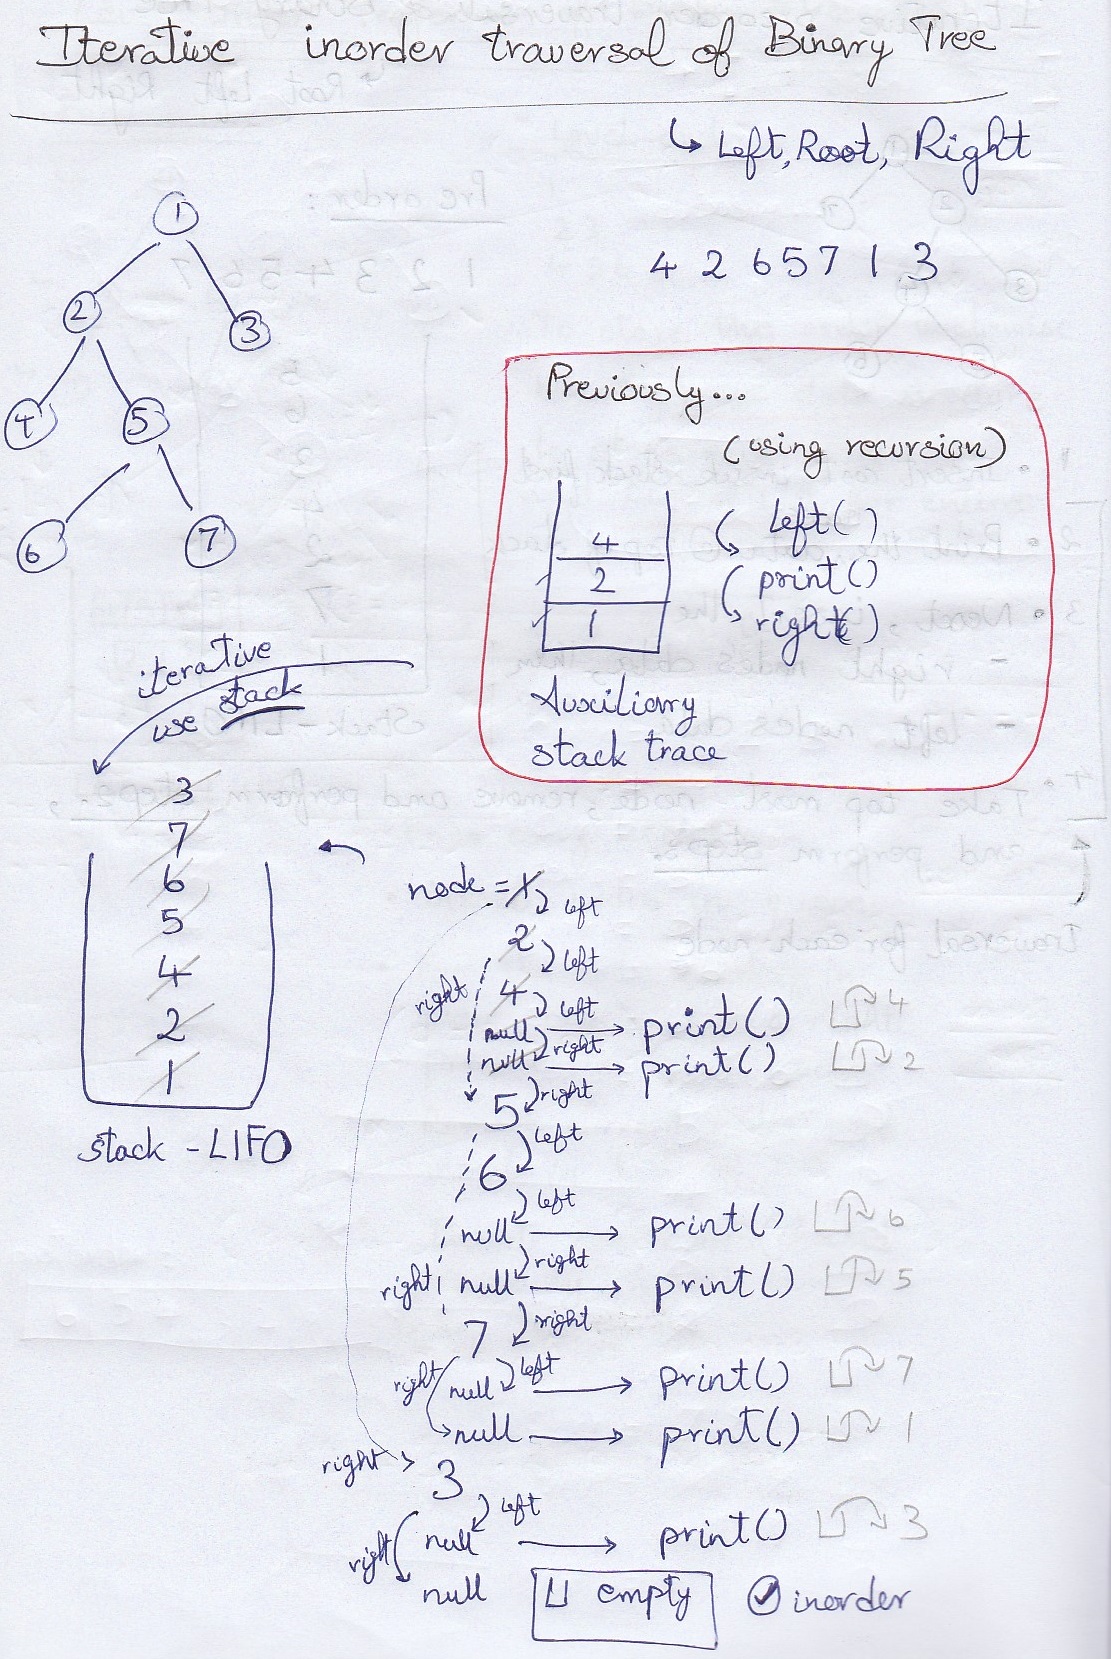 Iterative inorder traversal of Binary Tree
↳ Left, Root, Right
4 2 6 5 7 1 3
1
2
3
4
5
6
7
Previously...
(using recursion)
4
2
1
left()
print()
right()
Auxiliary
stack trace
iterative
use stack
3
7
6
5
4
2
1
stack - LIFO
node = 1 left
2 left
right 4 left
null → print() 4
null right → print() 2
right
5 left
6 left
null → print() 6
right
right null → print() 5
right
7 left
right null → print() 7
null → print() 1
right 3 left
right null → print() 3
null
empty
inorder